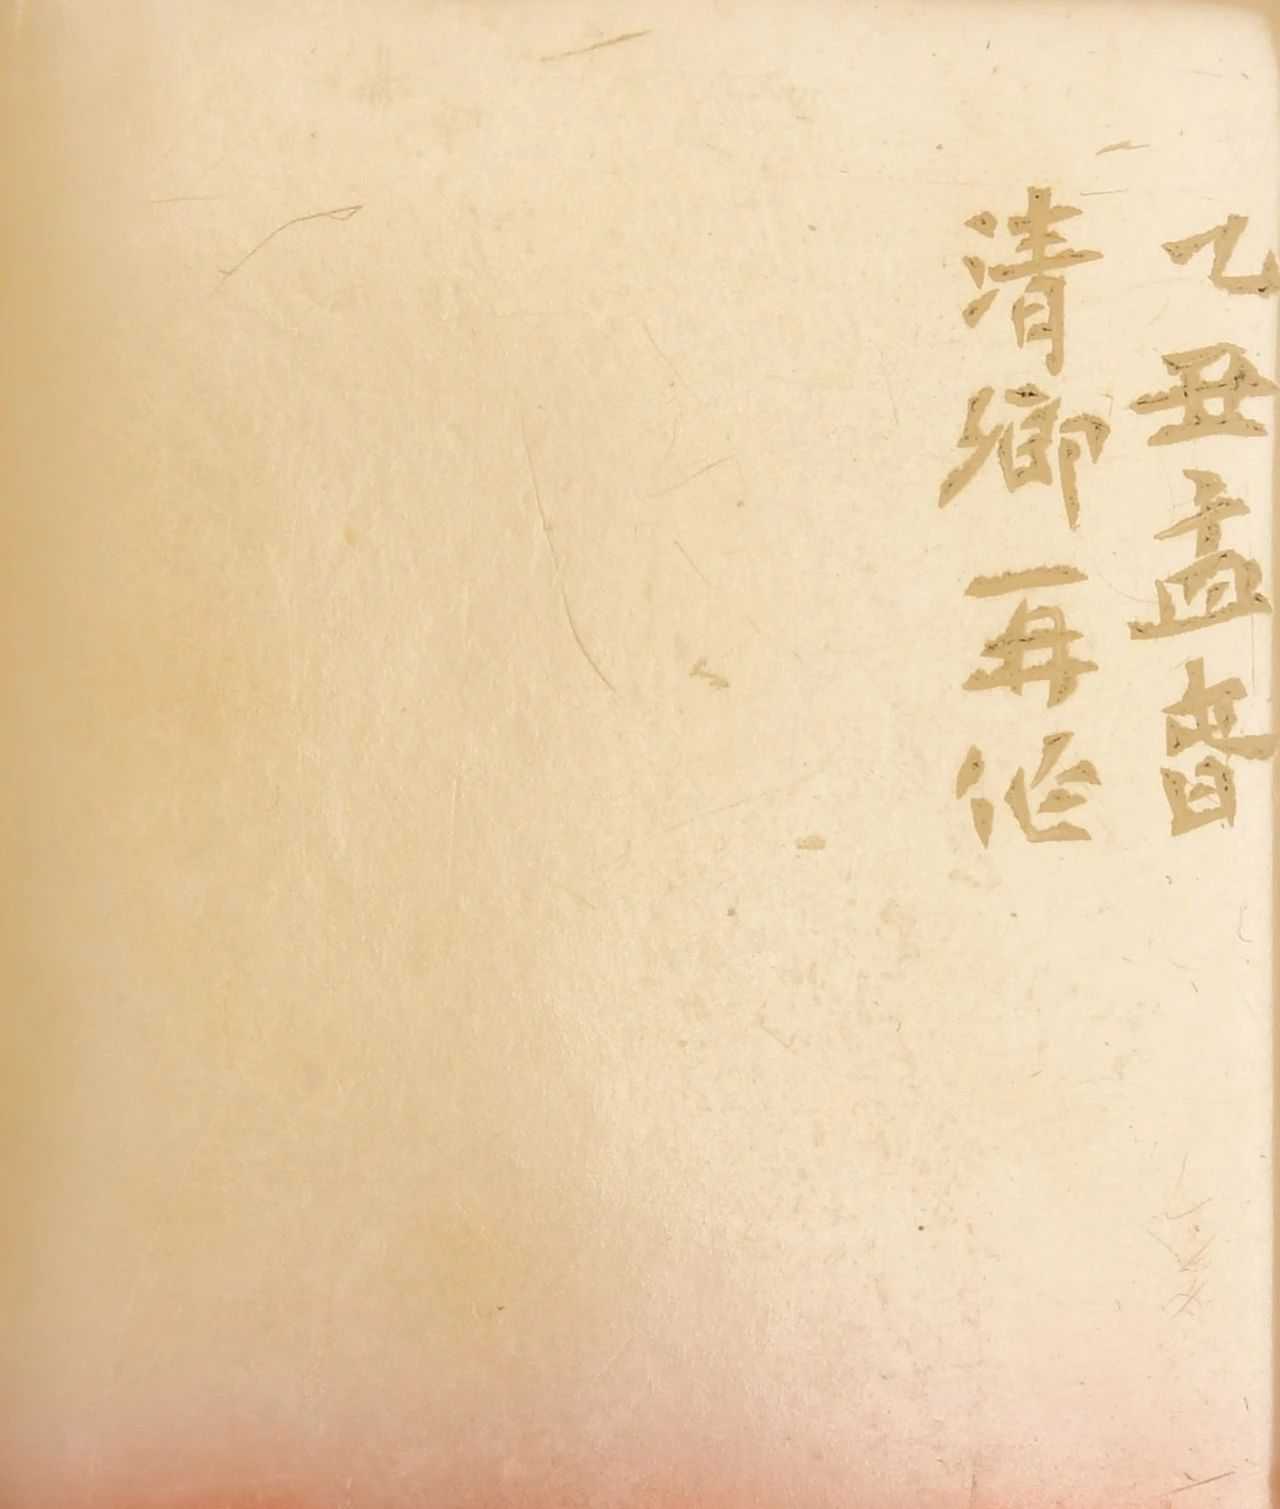 乙丑孟春
清卿再作